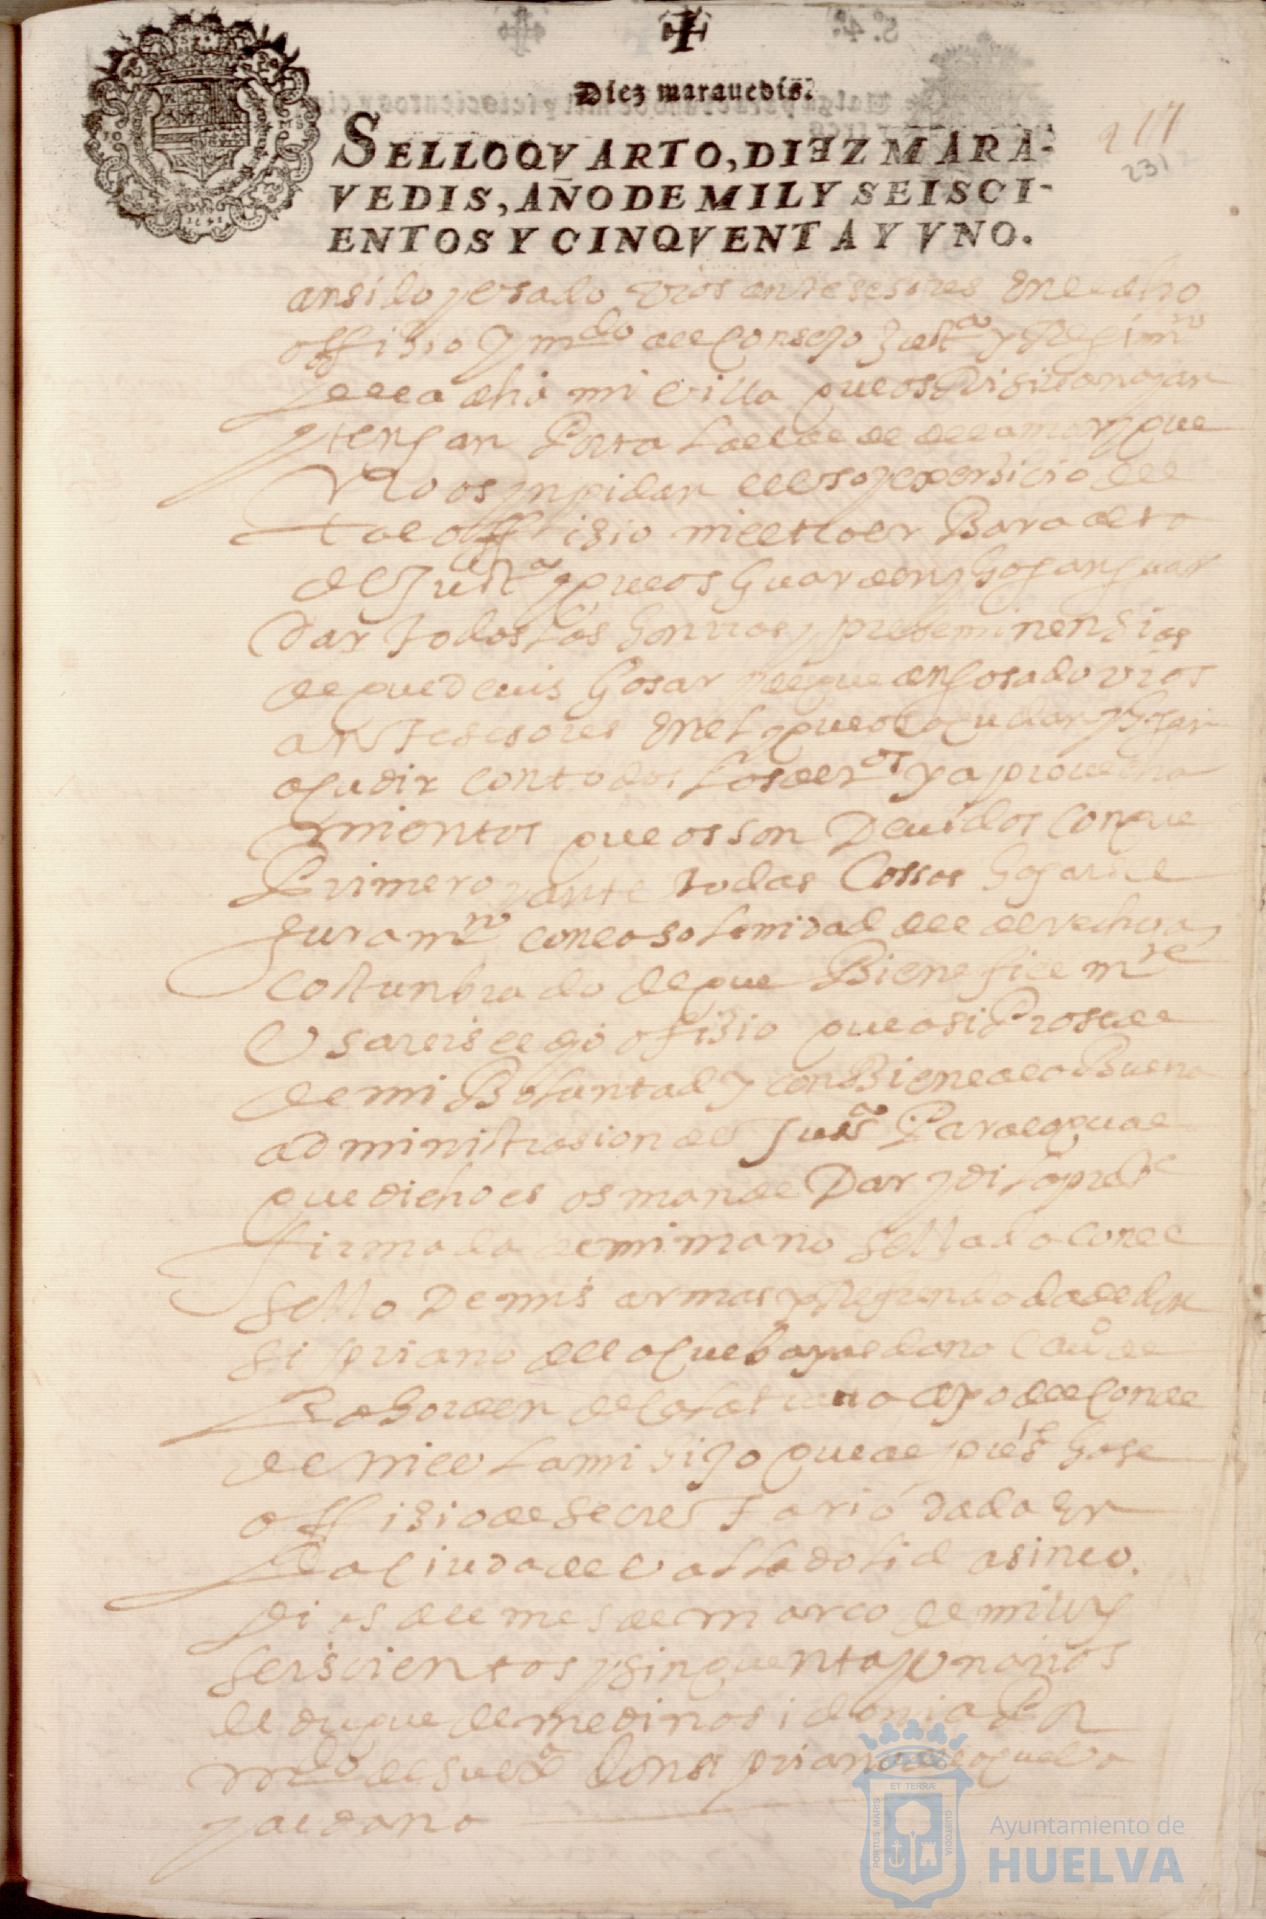 Diez marauedis.
SELLO QVARTO, DIEZ MARA-
VEDIS, AÑO DE MIL Y SEISCI-
ENTOS Y CINQVENTA Y VNO.
217
231
an sido y usado vros antesesores en el dho
offisio y mdo al Consejo Justa y Regimto
de la dha mi villa que os Resivan ayan
y tengan Por tal alcalde della mor y que
No os ynpidan el uso y exersisio del
tal offisio ni el traer Bara alta
de Justa y que os Guarden y hagan guar
dar todas las honrras y preheminensias
de que deveis Gosar y de que an gosado vros
antesesores en el y que os acudan y hagan
acudir con todos los deros y aprouecha
mientos que os son Devidos con que
Primero y ante todas Cossas hagais el
Juramto con la solenidad del derecho a
costunbrado de que Bien e fielmte
Usareis el dho offisio que asi Prosede
de mi Boluntad y conBiene a la Buena
administrasion de Justa Para lo qual
que dicho es os mande Dar y di la preste
firmada de mi mano sellada con el
sello De mis armas y Refrendada de don
Sipriano de la Cueba y aldana Cauo de
La horden de Calatraua ayo del Conde
de Niebla mi hijo que al preste hase
offisio de Secrettario dada En
La Ciudad de Valladolid a sinco
dias del mes de março de mill y
seiscientos y sinquenta y un años
el duque de medina sidonia Por
mdo de su exa don Sipriano de la cueba
y aldana
ET TERRÆ
PORTUS MARIS
CUSTODIA
Ayuntamiento de
HUELVA